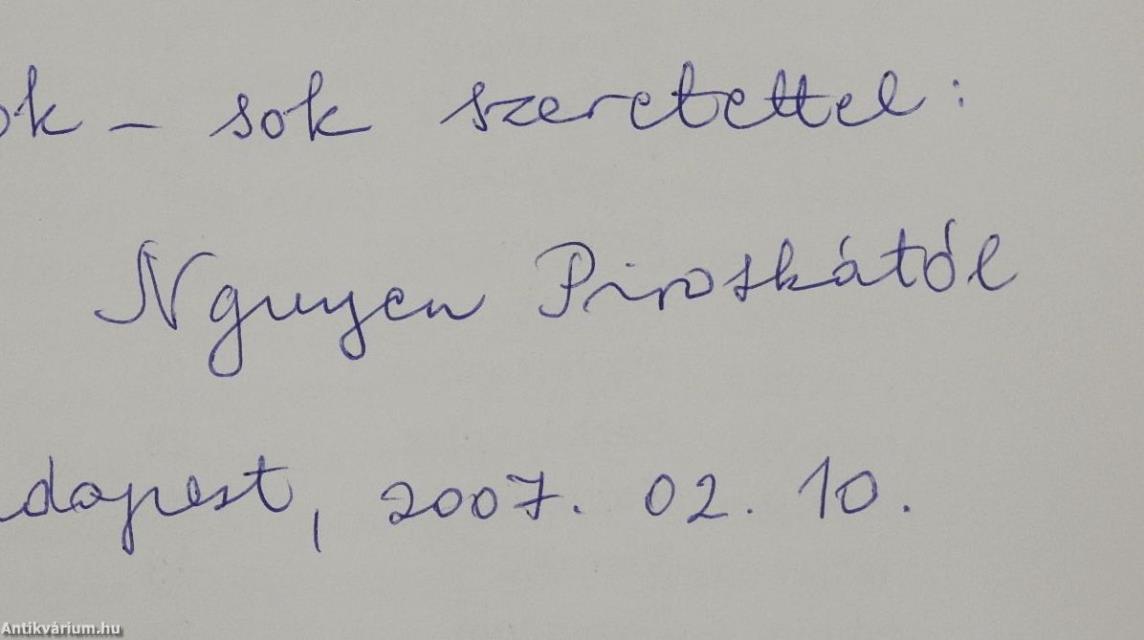 ok - sok szeretettel:
Nguyen Piroskától
dapest, 2007. 02. 10.
Antikvárium.hu